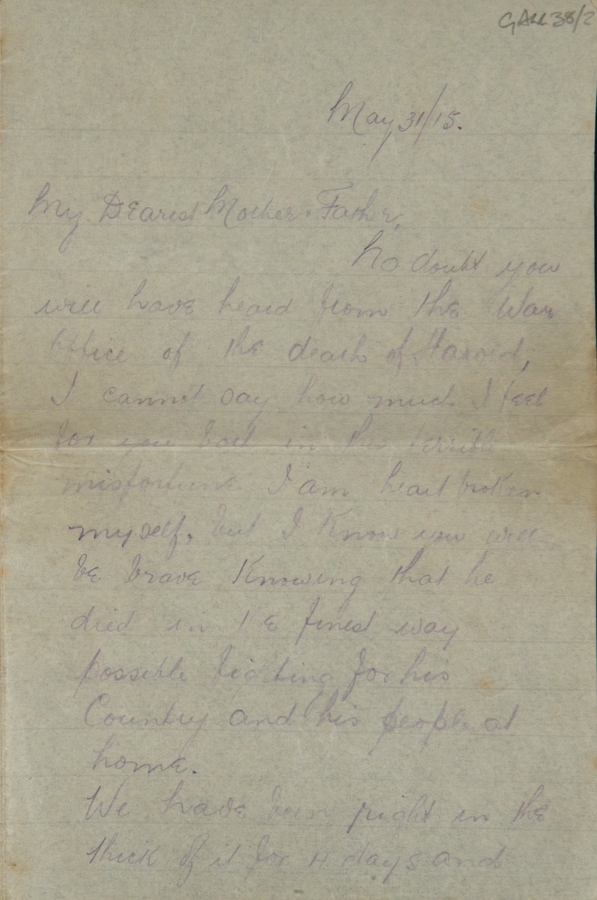 GALL 38/2
May 31/15.
My Dearest Mother & Father,
No doubt you
will have heard from the War
Office of the death of Harold,
I cannot say how much I feel
for you both in this terrible
misfortune. I am heart broken
myself, but I know you will
be brave knowing that he
died in the finest way
possible fighting for his
Country and his people at
home.
We have been right in the
thick of it for days and